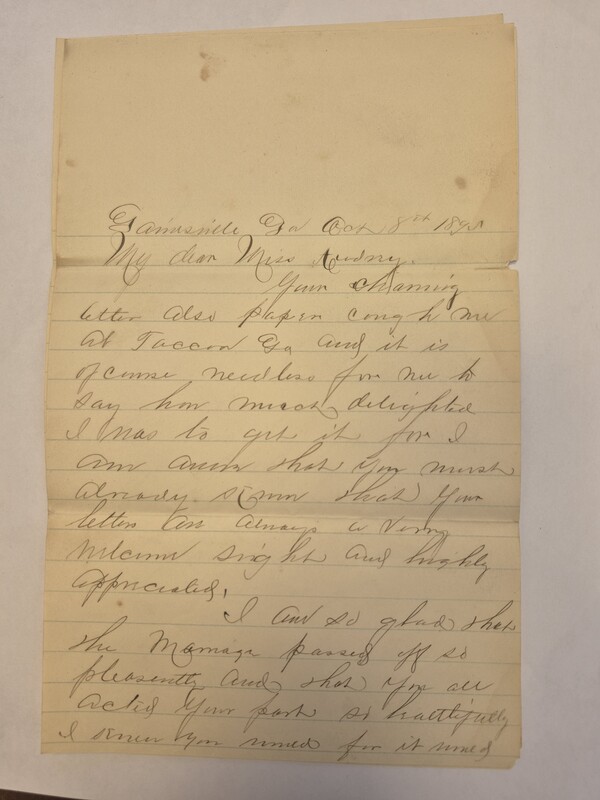 Gainesville Ga Oct 8st 1895
My dear Miss Audrey.
Your charming
letter also paper cough me
at Toccoa Ga and it is
ofcourse needless for me to
say how much delighted
I was to get it for I
am awar that you must
already know that your
letters are always a very
welcome sight and highly
appreciated,
I am so glad that
the Marriage passed off so
pleasently and that you all
acted your part so
I knew you would for it would